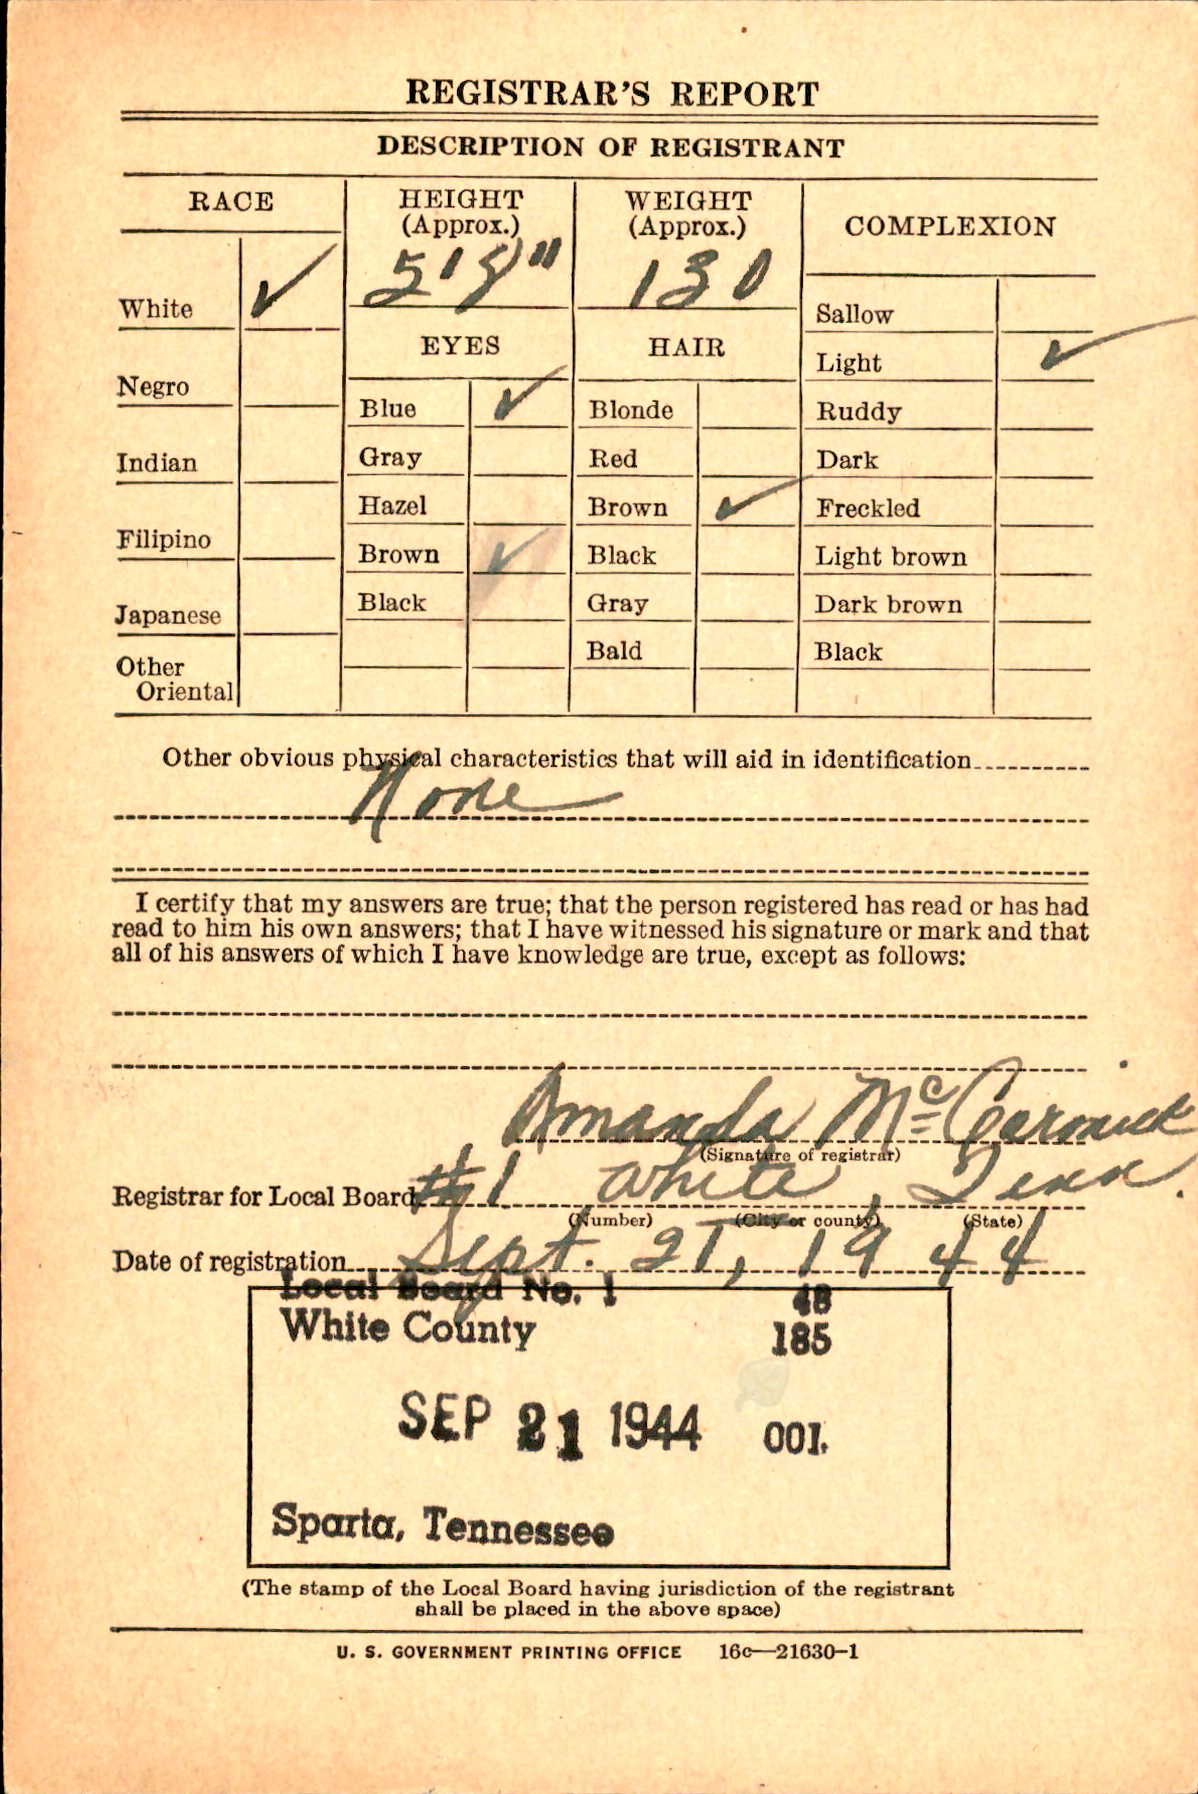 REGISTRAR'S REPORT
DESCRIPTION OF REGISTRANT
RACE
White ✓
Negro
Indian
Filipino
Japanese
Other
Oriental
HEIGHT
(Approx.)
5'8"
EYES
Blue ✓
Gray
Hazel
Brown ✓
Black
WEIGHT
(Approx.)
130
HAIR
Blonde
Red
Brown ✓
Black
Gray
Bald
COMPLEXION
Sallow
Light ✓
Ruddy
Dark
Freckled
Light brown
Dark brown
Black
Other obvious physical characteristics that will aid in identification
None
I certify that my answers are true; that the person registered has read or has had
read to him his own answers; that I have witnessed his signature or mark and that
all of his answers of which I have knowledge are true, except as follows:
Amanda
(Signature of registrar)
Registrar for Local Board #1 White, Tenn.
(Number) (City or county) (State)
Date of registration Sept. 21, 1944
Local Board No. 1 48
White County 185
SEP 21 1944 001.
Sparta, Tennessee
(The stamp of the Local Board having jurisdiction of the registrant
shall be placed in the above space)
U. S. GOVERNMENT PRINTING OFFICE 16c—21630-1